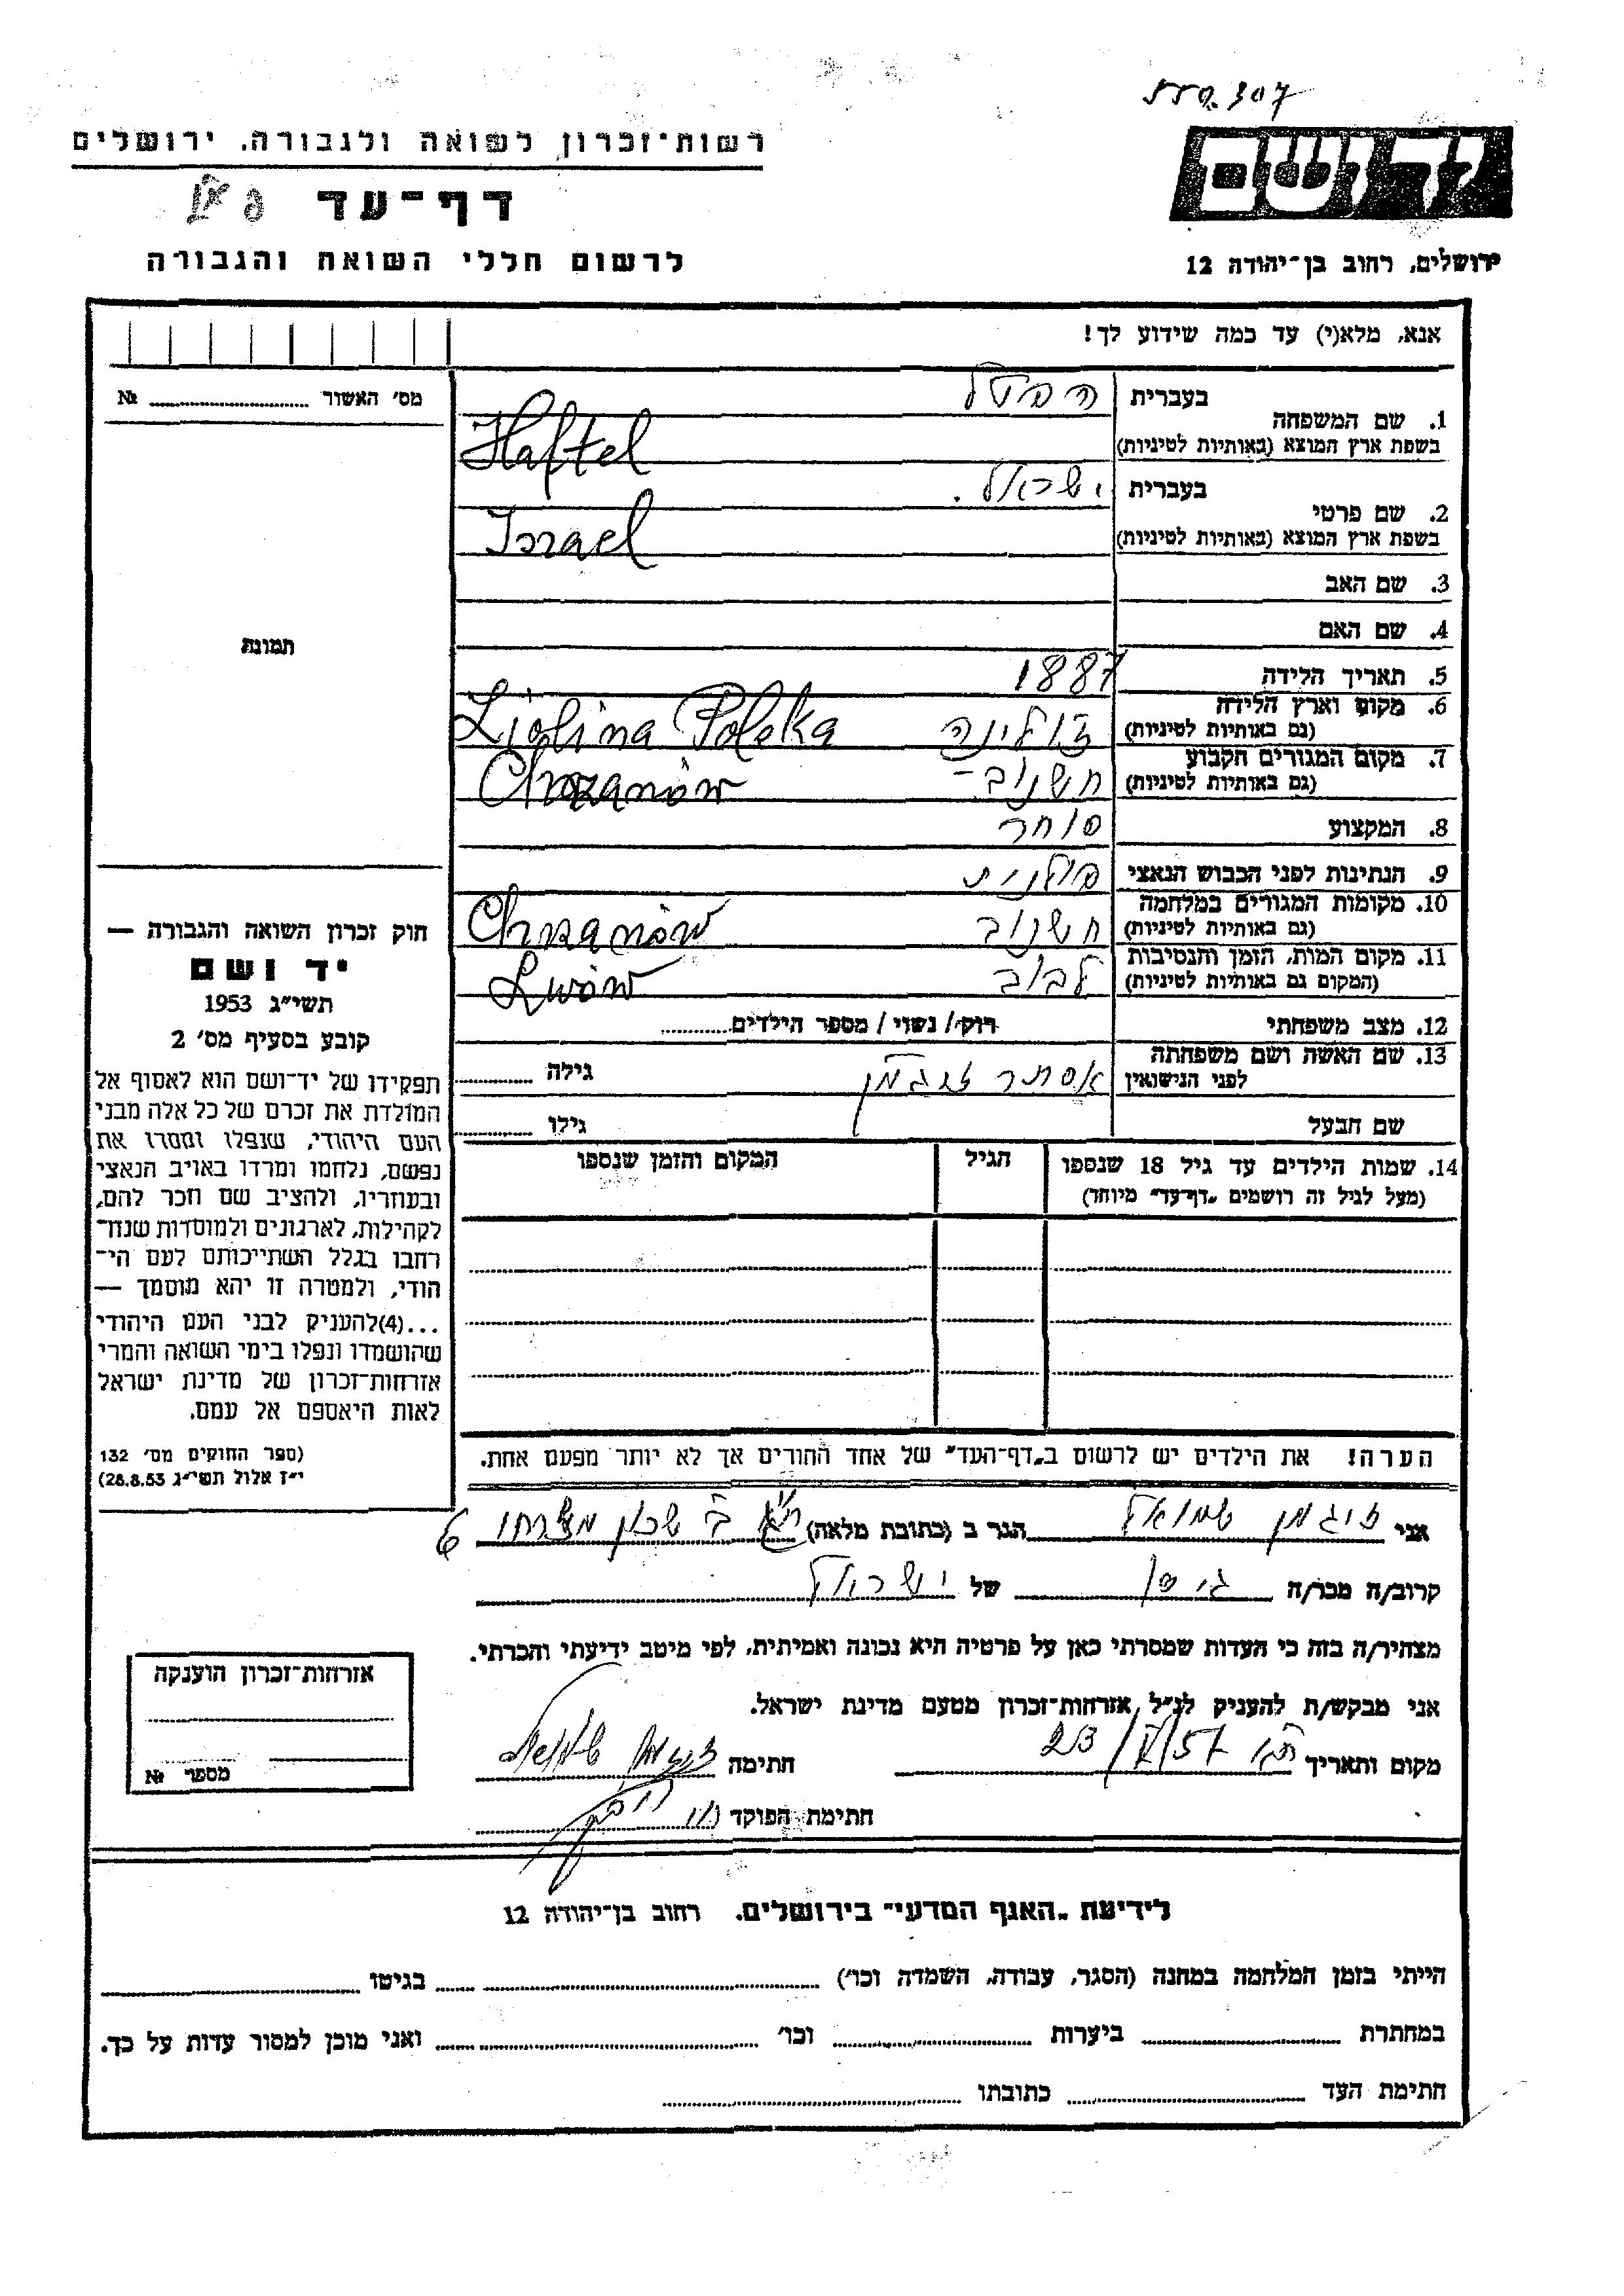 רשות־זכרון לשואה ולגבורה, ירושלים
דף־עד
לרשום חללי השואה והגבורה
יד ושם
ירושלים, רחוב בן־יהודה 12
אנא, מלא(י) עד כמה שידוע לך!
מס׳ האשור № ..........
תמונה
1. שם המשפחה
בעברית הפטל
בשפת ארץ המוצא (באותיות לטיניות) Haftel
2. שם פרטי
בעברית ישראל.
בשפת ארץ המוצא (באותיות לטיניות) Israel
3. שם האב
4. שם האם
5. תאריך הלידה 1887
6. מקום וארץ הלידה
(גם באותיות לטיניות) Polska
7. מקום המגורים הקבוע
(גם באותיות לטיניות) חשנוב - Chrzanów
8. המקצוע סוחר
9. הנתינות לפני הכבוש הנאצי פולנית
10. מקומות המגורים במלחמה
(גם באותיות לטיניות) חשנוב Chrzanów
11. מקום המות, הזמן והנסיבות
(המקום גם באותיות לטיניות) לבוב Lwów
12. מצב משפחתי רוק / נשוי / מספר הילדים..........
13. שם האשה ושם משפחתה
לפני הנישואין אסתר זיגמן גילה ..........
שם הבעל גילו ..........
14. שמות הילדים עד גיל 18 שנספו
(מעל לגיל זה רושמים „דף־עד” מיוחד)
הגיל
המקום והזמן שנספו
הערה! את הילדים יש לרשום ב„דף־העד” של אחד ההורים אך לא יותר מפעם אחת.
חוק זכרון השואה והגבורה —
יד ושם
תשי״ג 1953
קובע בסעיף מס׳ 2
תפקידו של יד־ושם הוא לאסוף אל
המולדת את זכרם של כל אלה מבני
העם היהודי, שנפלו ומסרו את
נפשם, נלחמו ומרדו באויב הנאצי
ובעוזריו, ולהציב שם וזכר להם,
לקהילות, לארגונים ולמוסדות שנח־
רחבו בגלל השתייכותם לעם הי־
הודי, ולמטרה זו יהא מוסמך —
...(4)להעניק לבני העם היהודי
שהושמדו ונפלו בימי השואה והמרי
אזרחות־זכרון של מדינת ישראל
לאות היאספם אל עמם.
(ספר החוקים מס׳ 132
י״ז אלול תשי״ג 28.8.53)
אני זיגמן שמואל הגר ב (כתובת מלאה) ב׳ שכון מזרחי 6
קרוב/ה מכר/ה גיסו של ישראל
מצהיר/ה בזה כי העדות שמסרתי כאן על פרטיה היא נכונה ואמיתית, לפי מיטב ידיעתי והכרתי.
אני מבקש/ת להעניק לנ״ל אזרחות־זכרון מטעם מדינת ישראל.
מקום ותאריך חתימה זיגמן שמואל
חתימת הפוקד
אזרחות־זכרון הוענקה
מספר №
לידיעת „האגף המדעי” בירושלים. רחוב בן־יהודה 12
הייתי בזמן המלחמה במחנה (הסגר, עבודה, השמדה וכו׳) .......... בגיטו ..........
במחתרת .......... ביערות .......... וכו׳ .......... ואני מוכן למסור עדות על כך.
חתימת העד .......... כתובתו ..........